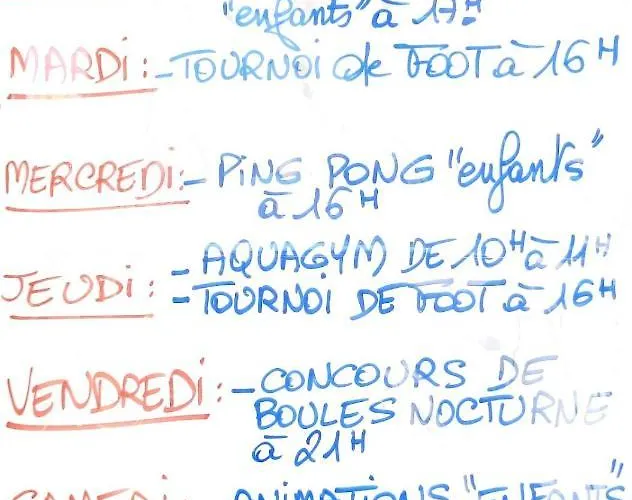 "enfants" à 17H
MARDI : - TOURNOI de FOOT à 16H
MERCREDI : - PING PONG "enfants"
à 16H
JEUDI : - AQUAGYM DE 10H à 11H
- TOURNOI DE FOOT à 16H
VENDREDI : - CONCOURS DE
BOULES NOCTURNE
à 21H
SAMEDI : ANIMATIONS "ENFANTS"